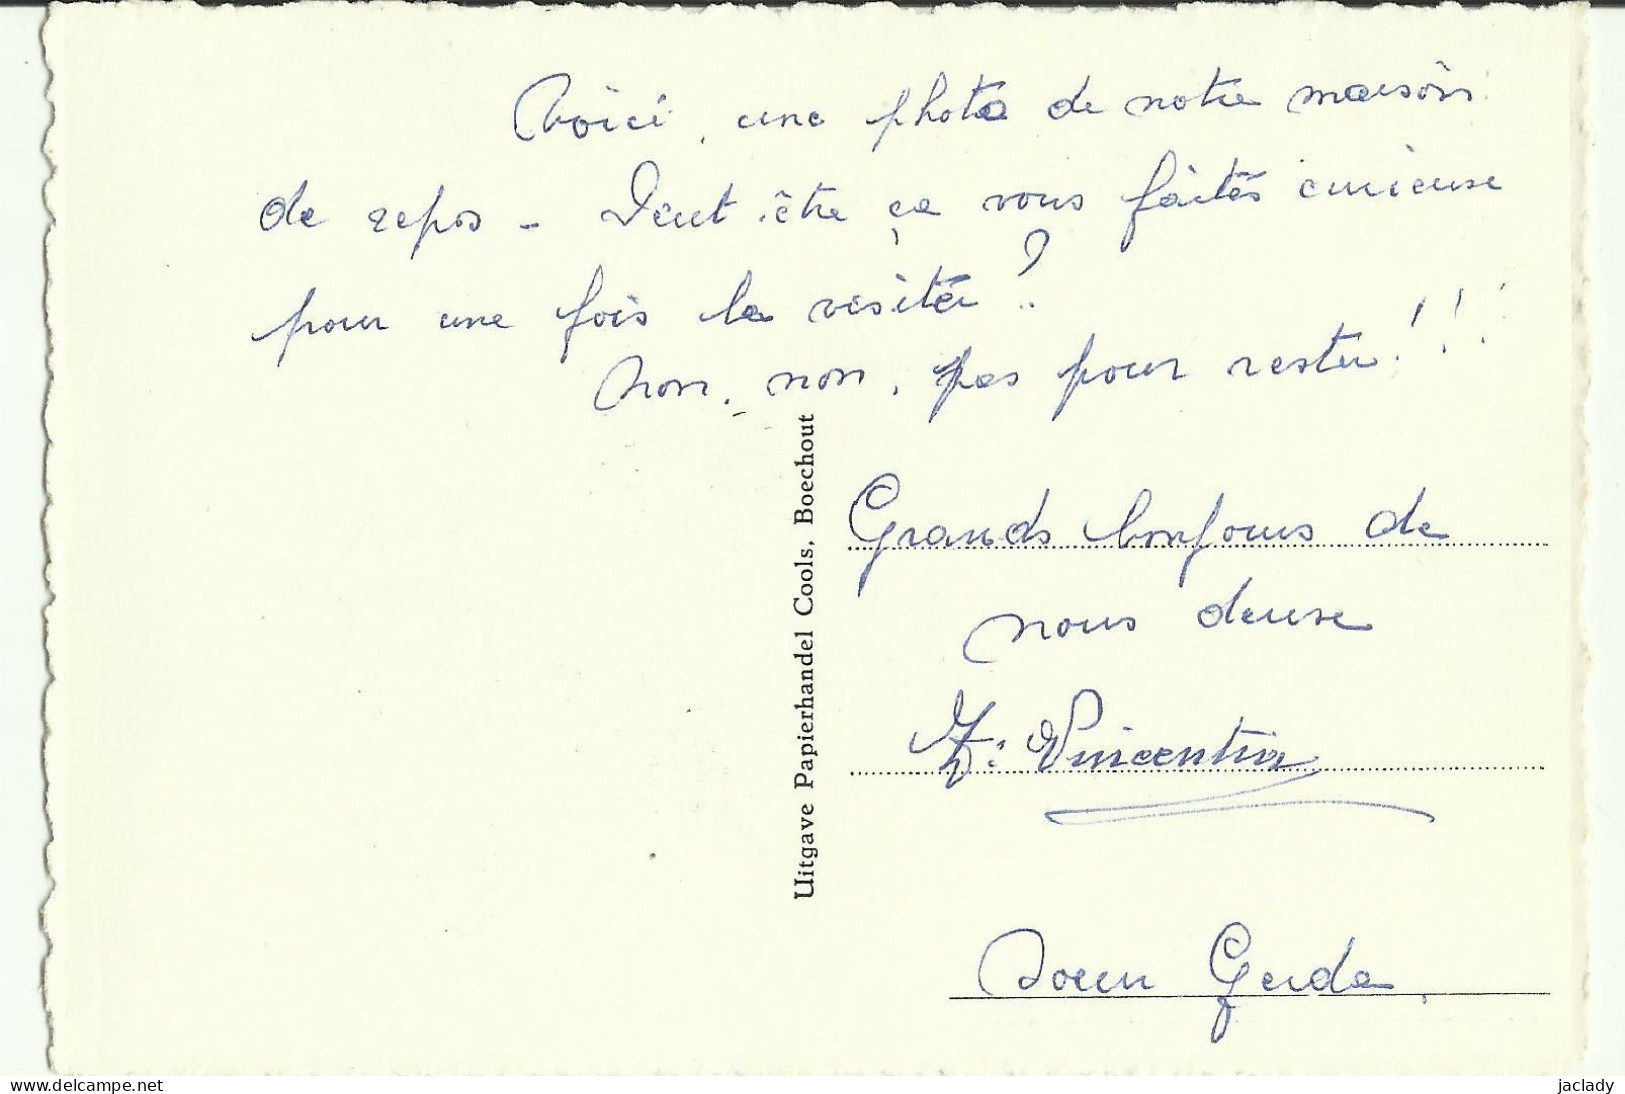 Voici, une photo de notre maison
de repos - Peut être ça vous faites curieuse
pour une fois la visiter ?
Non, non, pas pour rester!!!
Uitgave Papierhandel Cools, Boechout
Grands bonjours de
nous deuse
Z: Vincentia
Soeur Gerda.
www.delcampe.net
jaclady